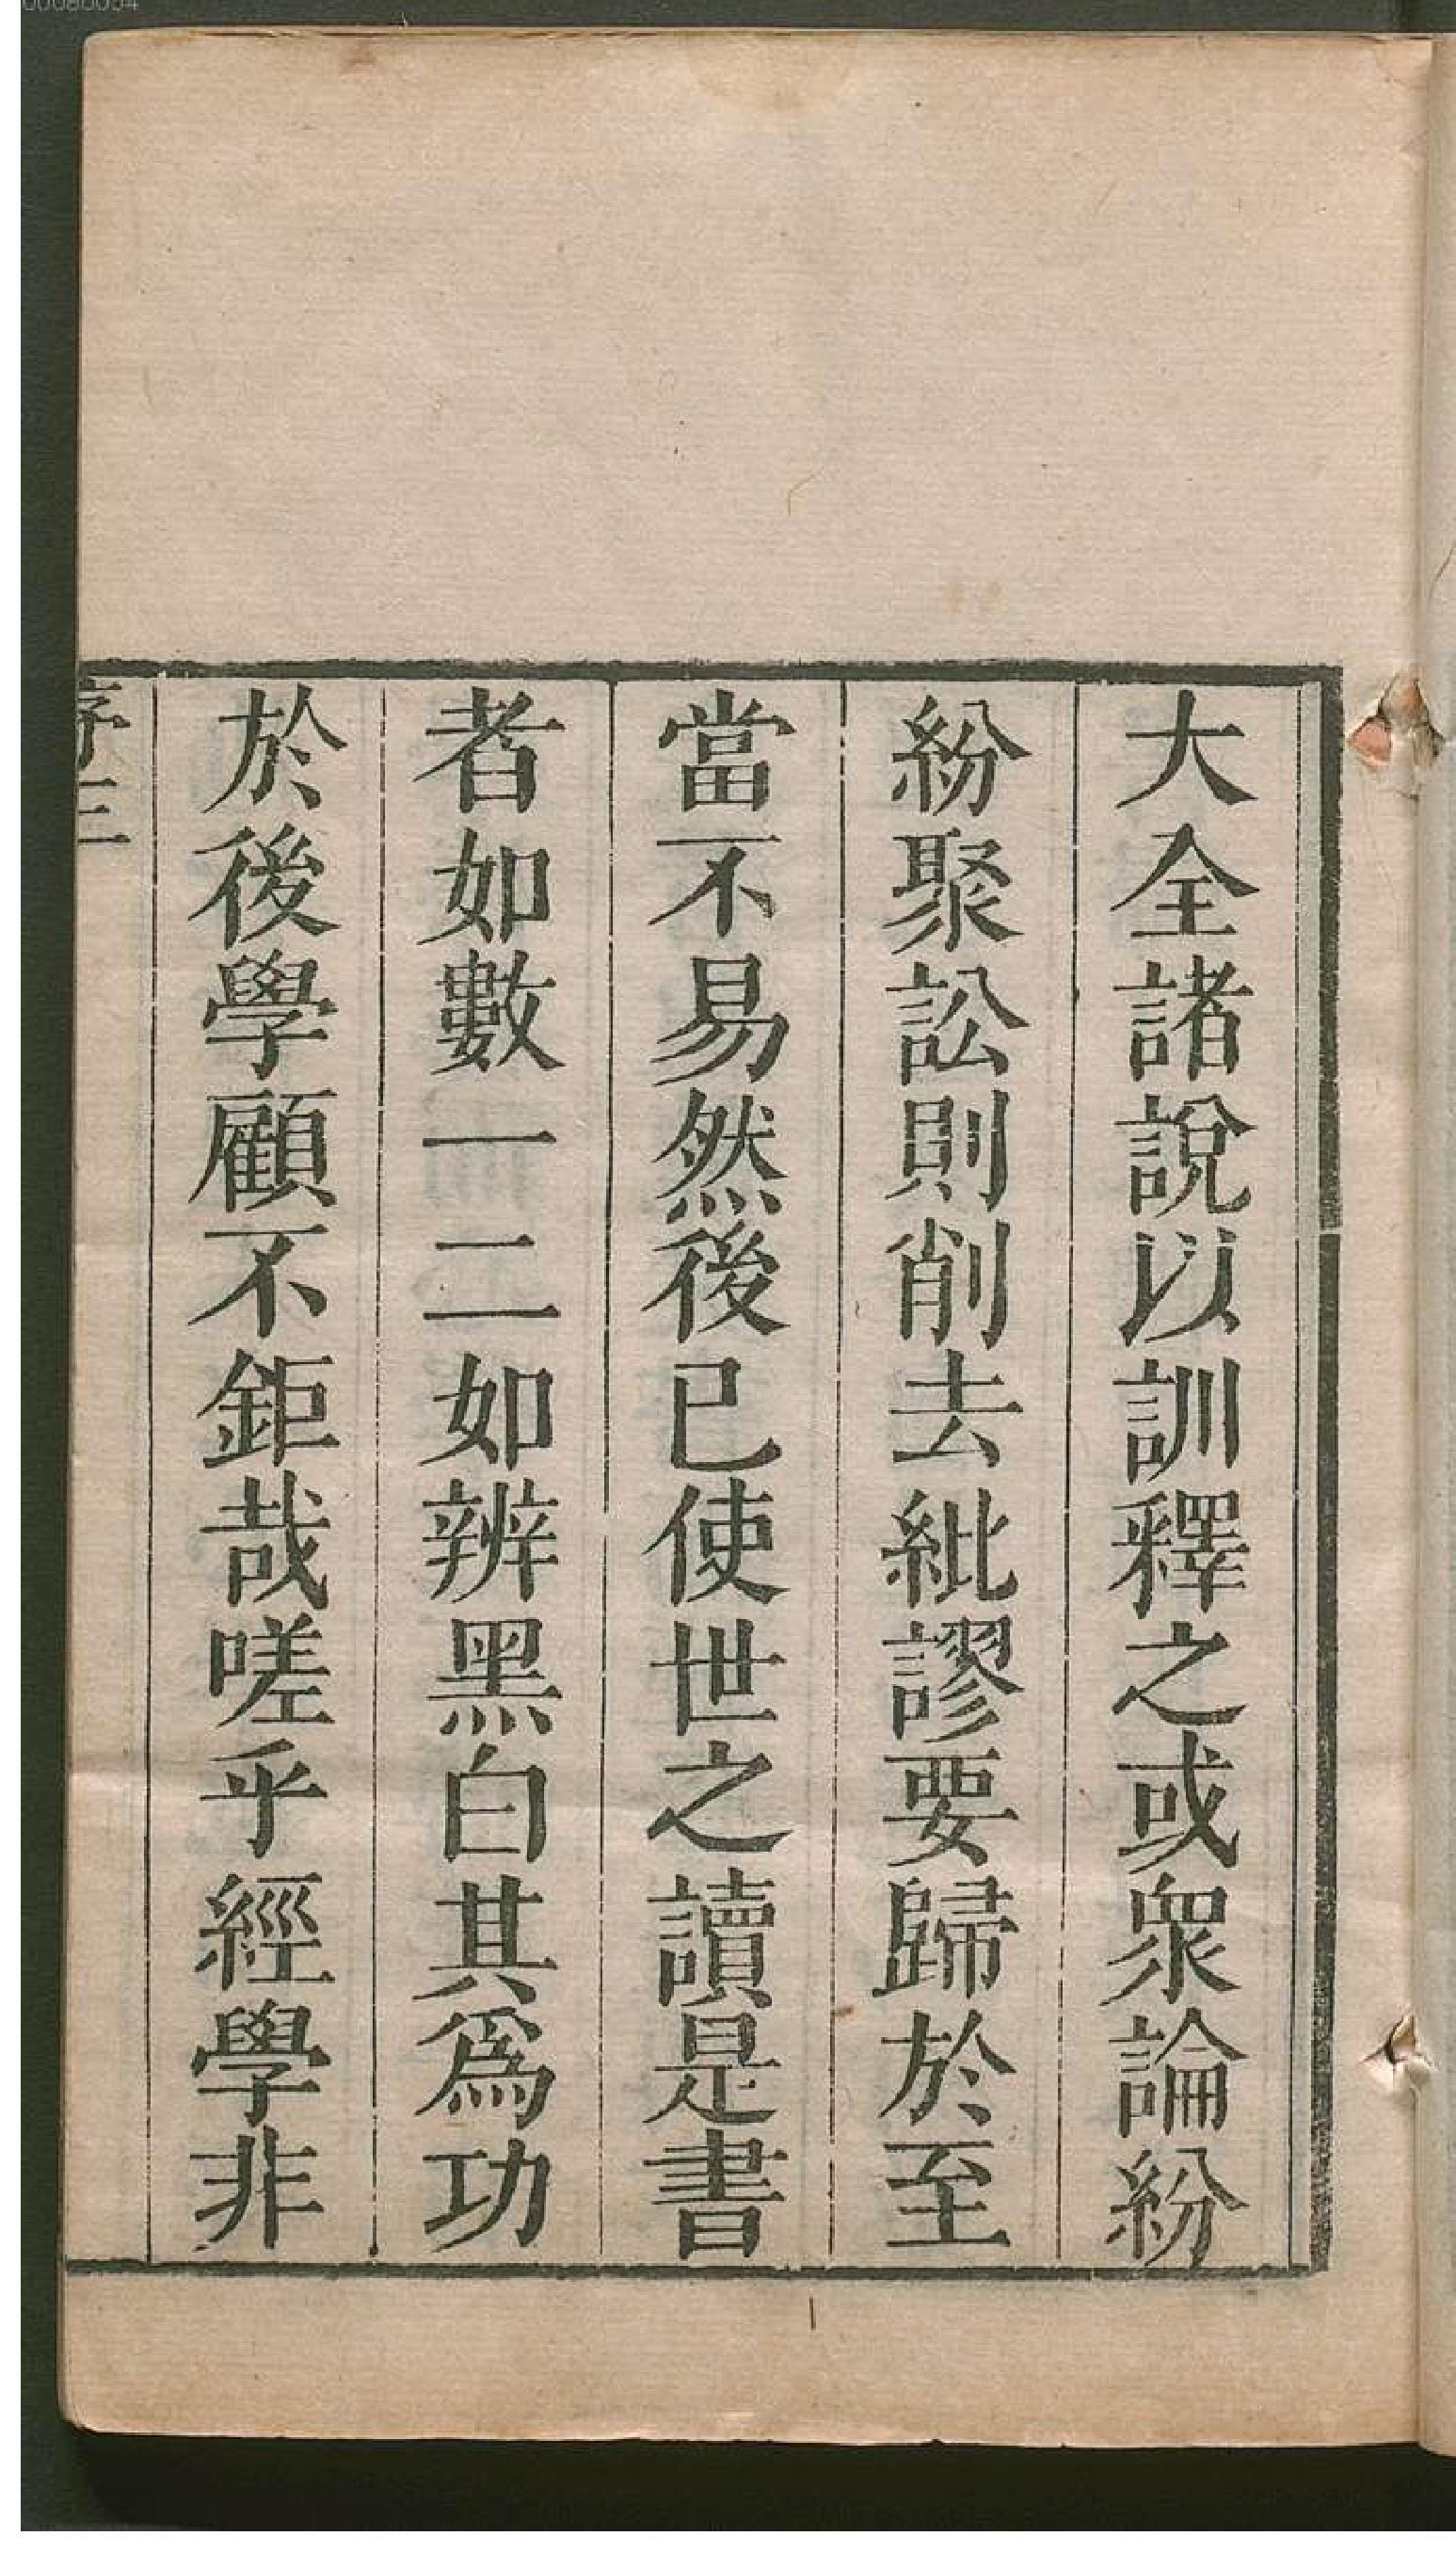 大全諸說以訓釋之或衆論紛
紛聚訟則削去紕謬要歸於至
當不易然後已使世之讀是書
者如數一二如辨黑白其爲功
於後學顧不鉅哉嗟乎經學非
序三